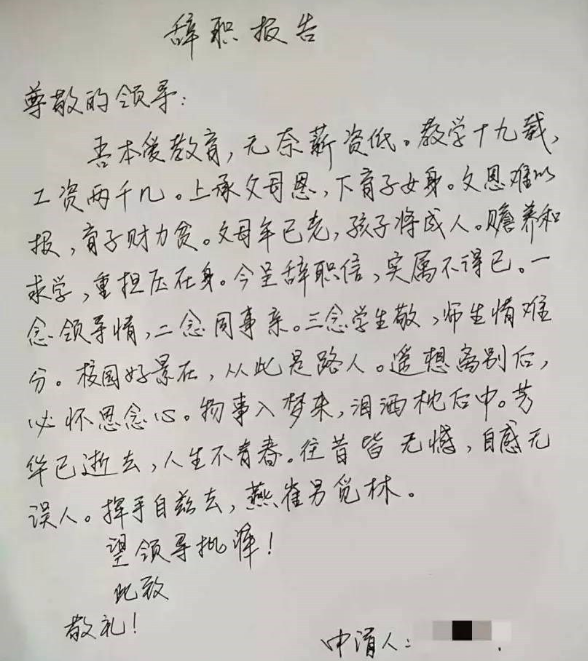 辞职报告
尊敬的领导：
吾本爱教育，无奈薪资低。教学十九载，
工资两千几。上承父母恩，下育子女身。父恩难以
报，育子财力贫。父母年已老，孩子将成人。赡养和
求学，重担压在身。今呈辞职信，实属不得已。一
念领导情，二念同事亲。三念学生敬，师生情难
分。校园好景在，从此是路人。遥想离别后，
必怀思念心。物事入梦来，泪洒枕后中。芳
华已逝去，人生不青春。往昔皆无憾，自感无
误人。挥手自兹去，燕雀另觅林。
望领导批准！
此致
敬礼！
申请人：